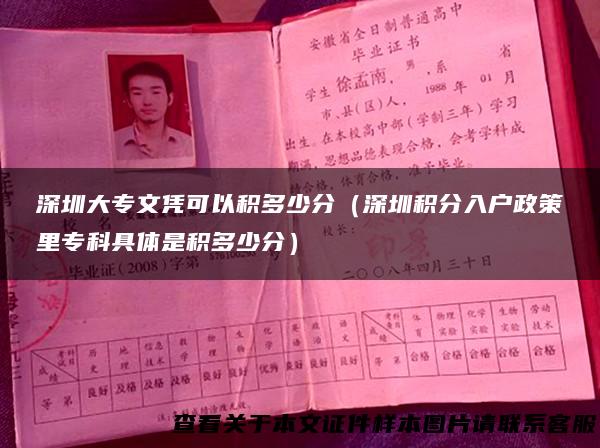 安徽省全日制普通高中
毕业证书
学生 徐孟南，男，系 省
市、县(区)人，1988年01月
出生。在本校高中部（学制三年）学习
期满，思想品德表现合格，会考学科成
合格，体育合格，准予毕业。
深圳大专文凭可以积多少分（深圳积分入户政策
里专科具体是积多少分）
校长：
毕业证(2008)字第
二〇〇八年四月三十日
考科 成绩 历史 地理 信息技术 数学 物理 生物 化学 英语 政治 语文
等第 良好 及格 及格 及格 良好 良好 优秀 良好 良好 良好
考查科目 成绩 体育 物理实验 化学实验 生物实验 劳动技术
等第 合格 合格 合格 合格 合格
查看关于本文证件样本图片请联系客服